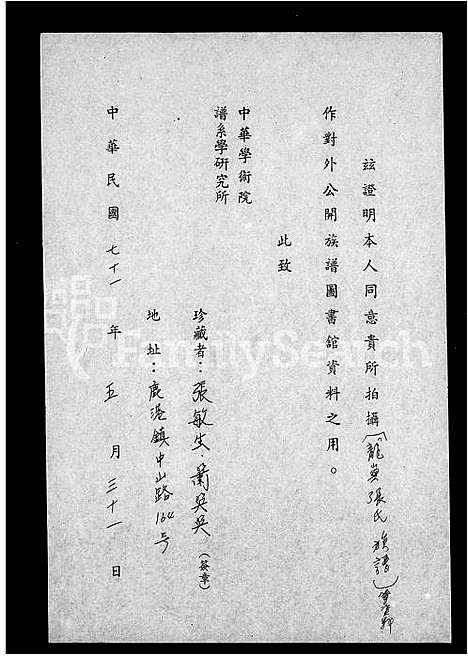 茲證明本人同意貴所拍攝(龍井張氏族譜)
作對外公開族譜圖書舘資料之用。
此致
中華學術院
譜系學研究所
珍藏者:張敏生.蕭吳吳(簽章)
地址:鹿港鎮中山路164号
中華民國七十一年五月三十一日
FamilySearch